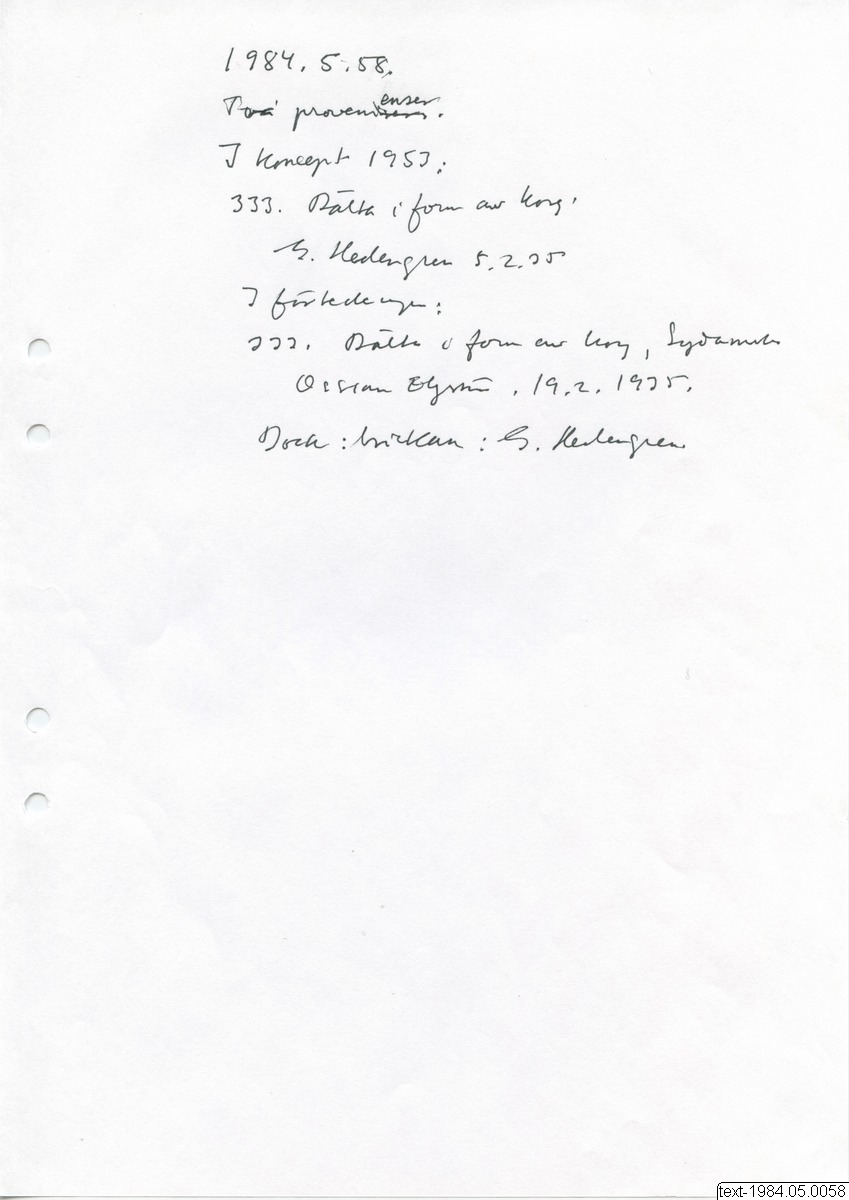 1984.5.58.
Två provenienser.
I koncept 1953:
333. Bälta i form av korg.
G. Hedengren 5.2.35
I förteckningen:
333. Bälta i form av korg, Sydamerika
Ossian Elgström, 19.2.1935.
Dock: brickan: G. Hedengren
text-1984.05.0058